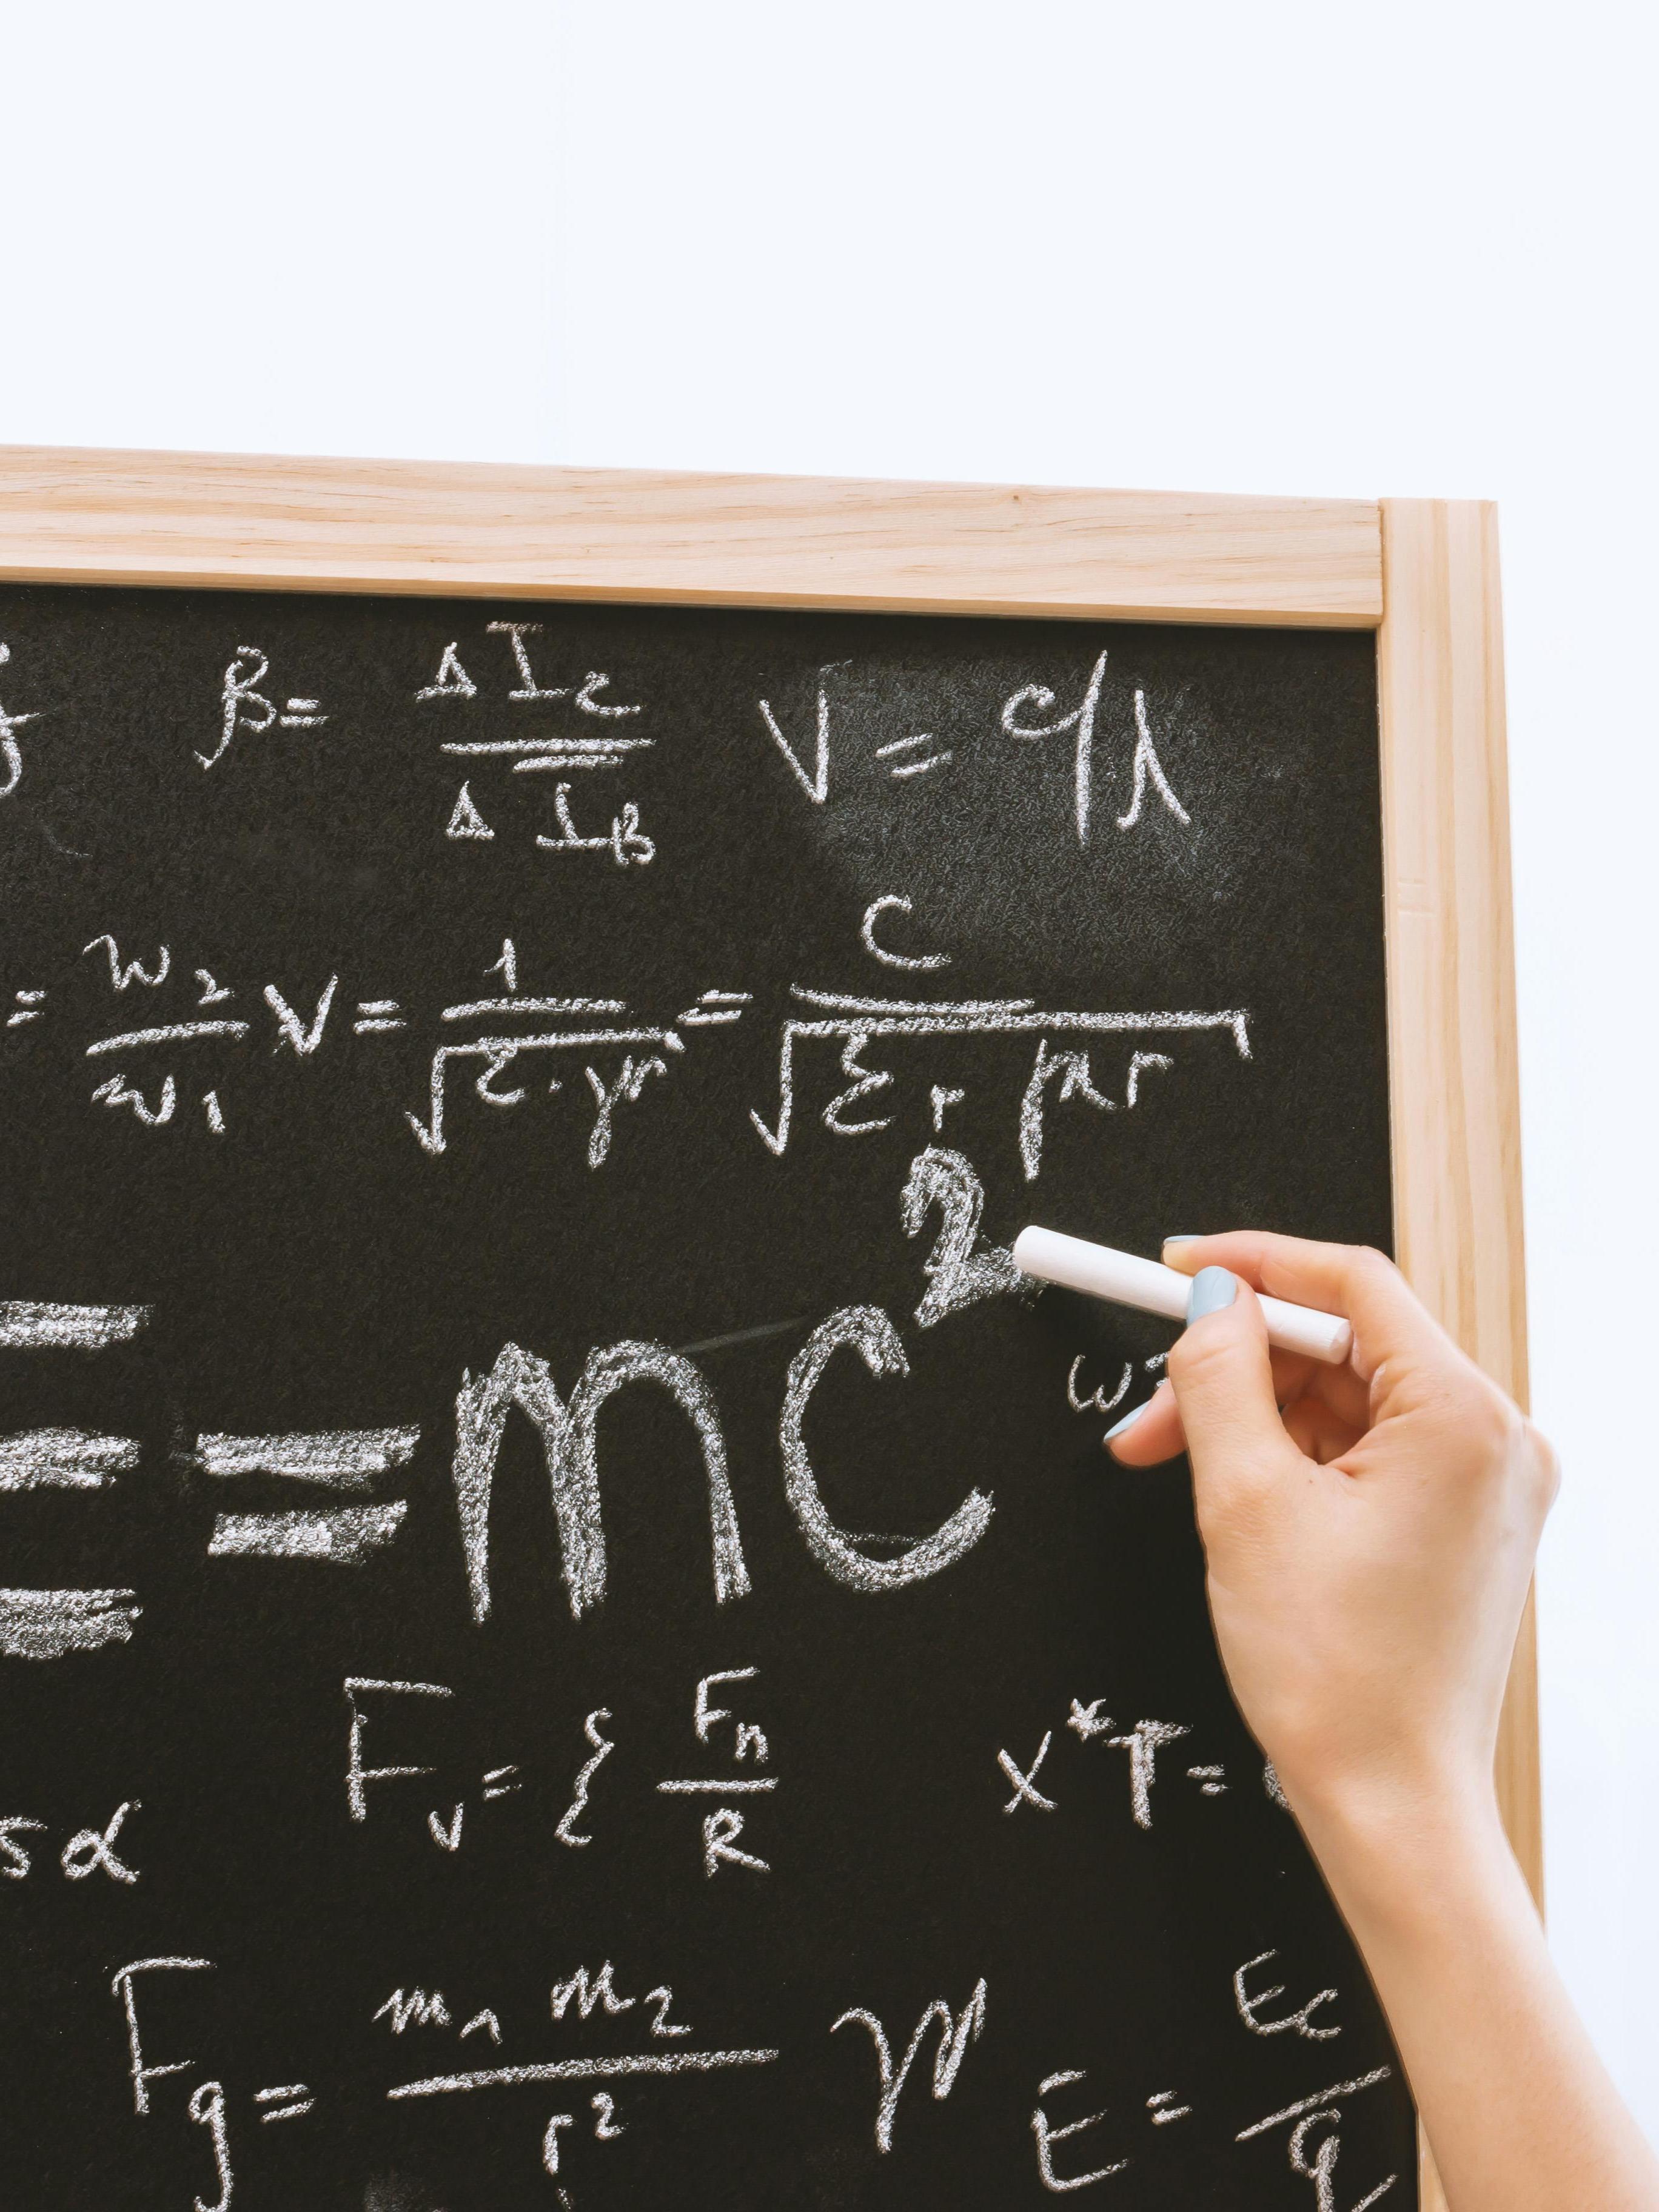 β= ΔI_c / ΔI_B V = c/λ
= w₂/w₁ V = 1/√(ε·μ) = c/√(ε_r μ_r)
E = mc²
w=
F_v = { F_n/R x*T =
sα
F_g = m₁ m₂ / r² E = E_c/q